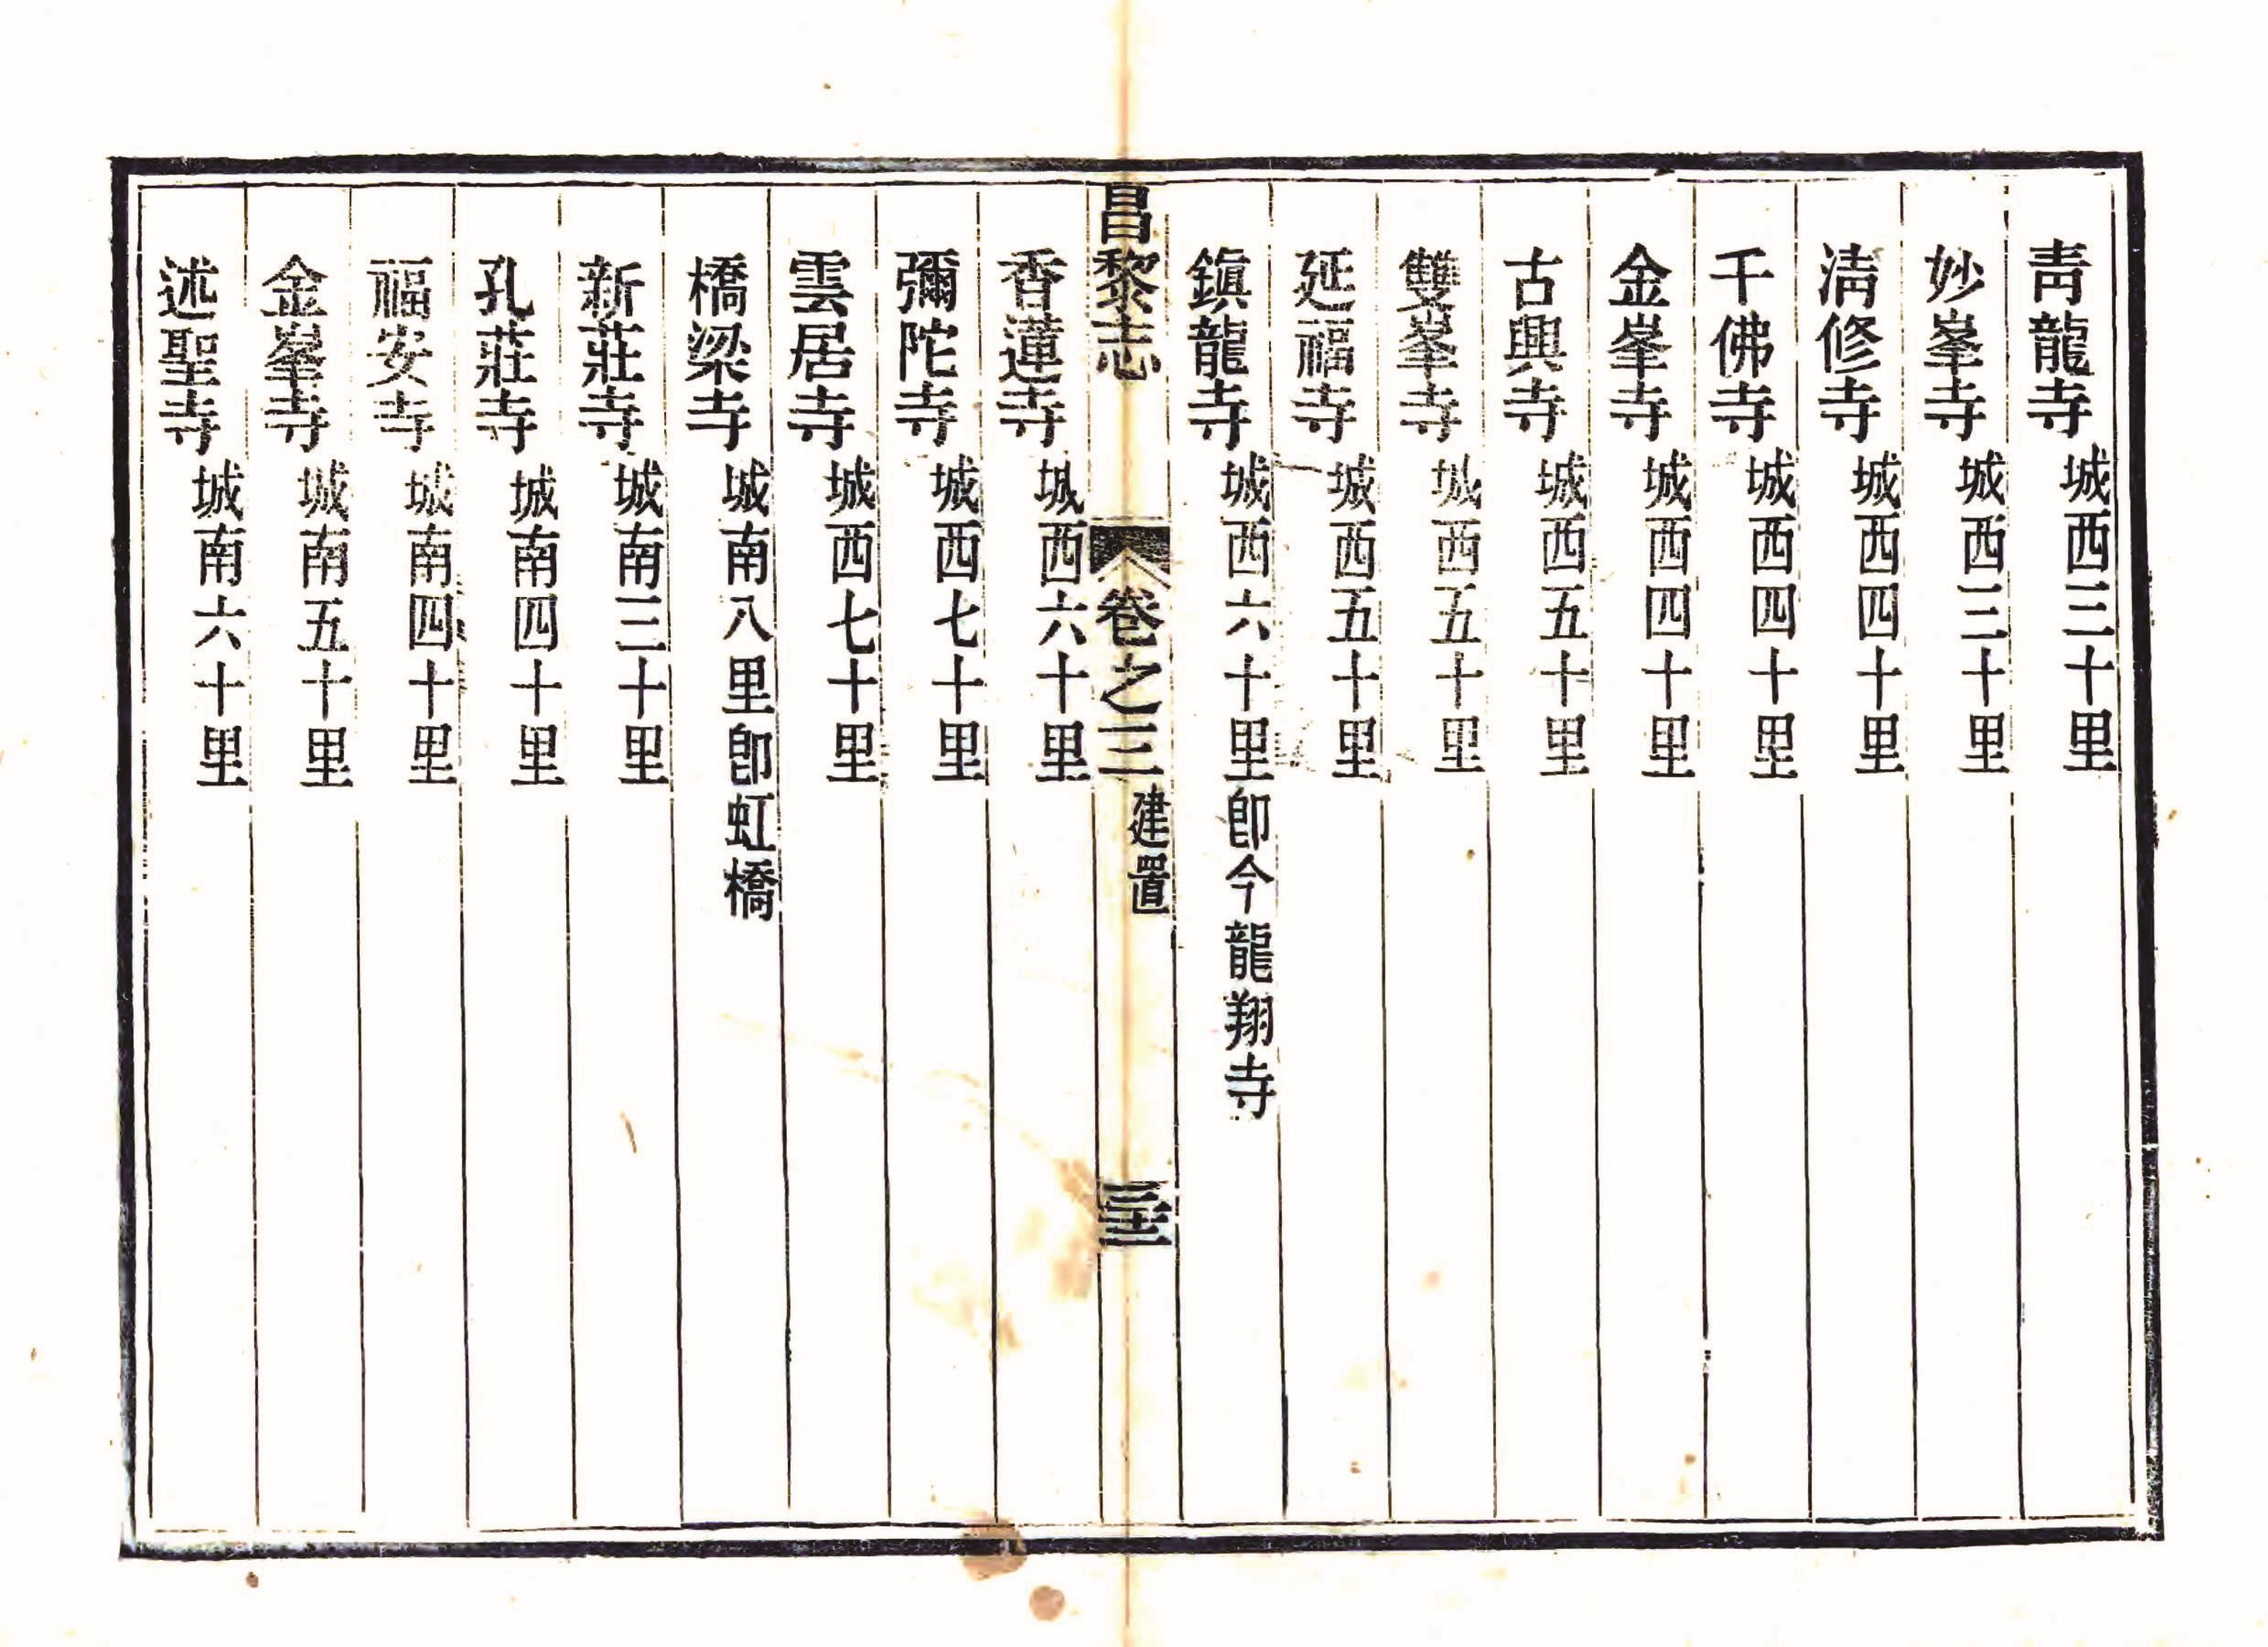 靑龍寺城西三十里
妙峯寺城西三十里
淸修寺城西四十里
千佛寺城西四十里
金峯寺城西四十里
古興寺城西五十里
雙峯寺城西五十里
延福寺城西五十里
鎭龍寺城西六十里卽今龍翔寺
昌黎志 卷之三 建置
香蓮寺城西六十里
彌陀寺城西七十里
雲居寺城西七十里
橋梁寺城南八里卽虹橋
新莊寺城南三十里
孔莊寺城南四十里
福安寺城南四十里
金峯寺城南五十里
述聖寺城南六十里